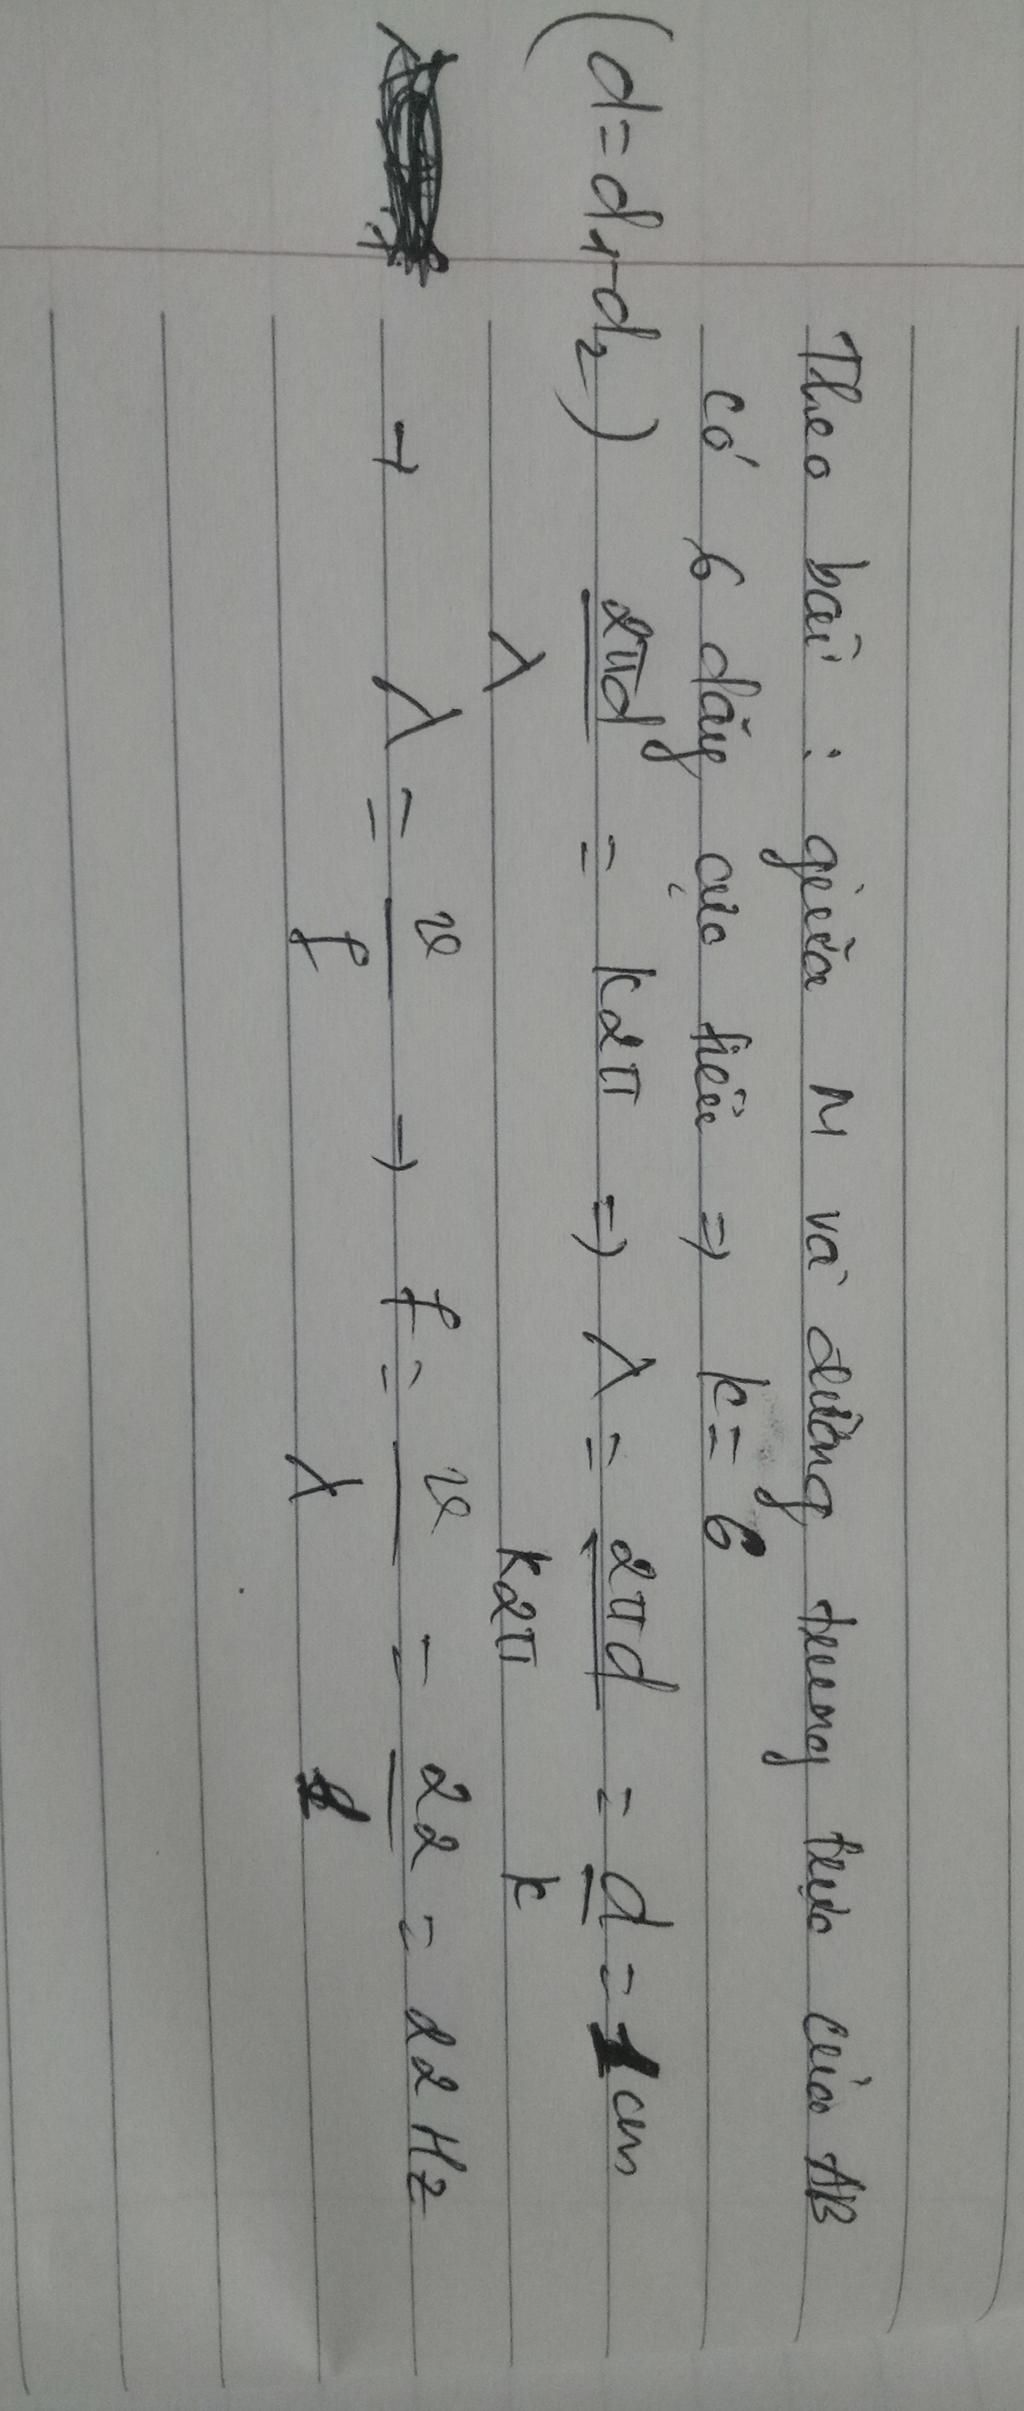 Theo bài : giữa M và đường trung trực của AB
có 6 dãy cực tiểu => k = 6
(d = d1 - d2) 2πd/λ = k2π => λ = 2πd/k2π = d/k = 1 cm
→ λ = v/f => f = v/λ = 22/1 = 22 Hz